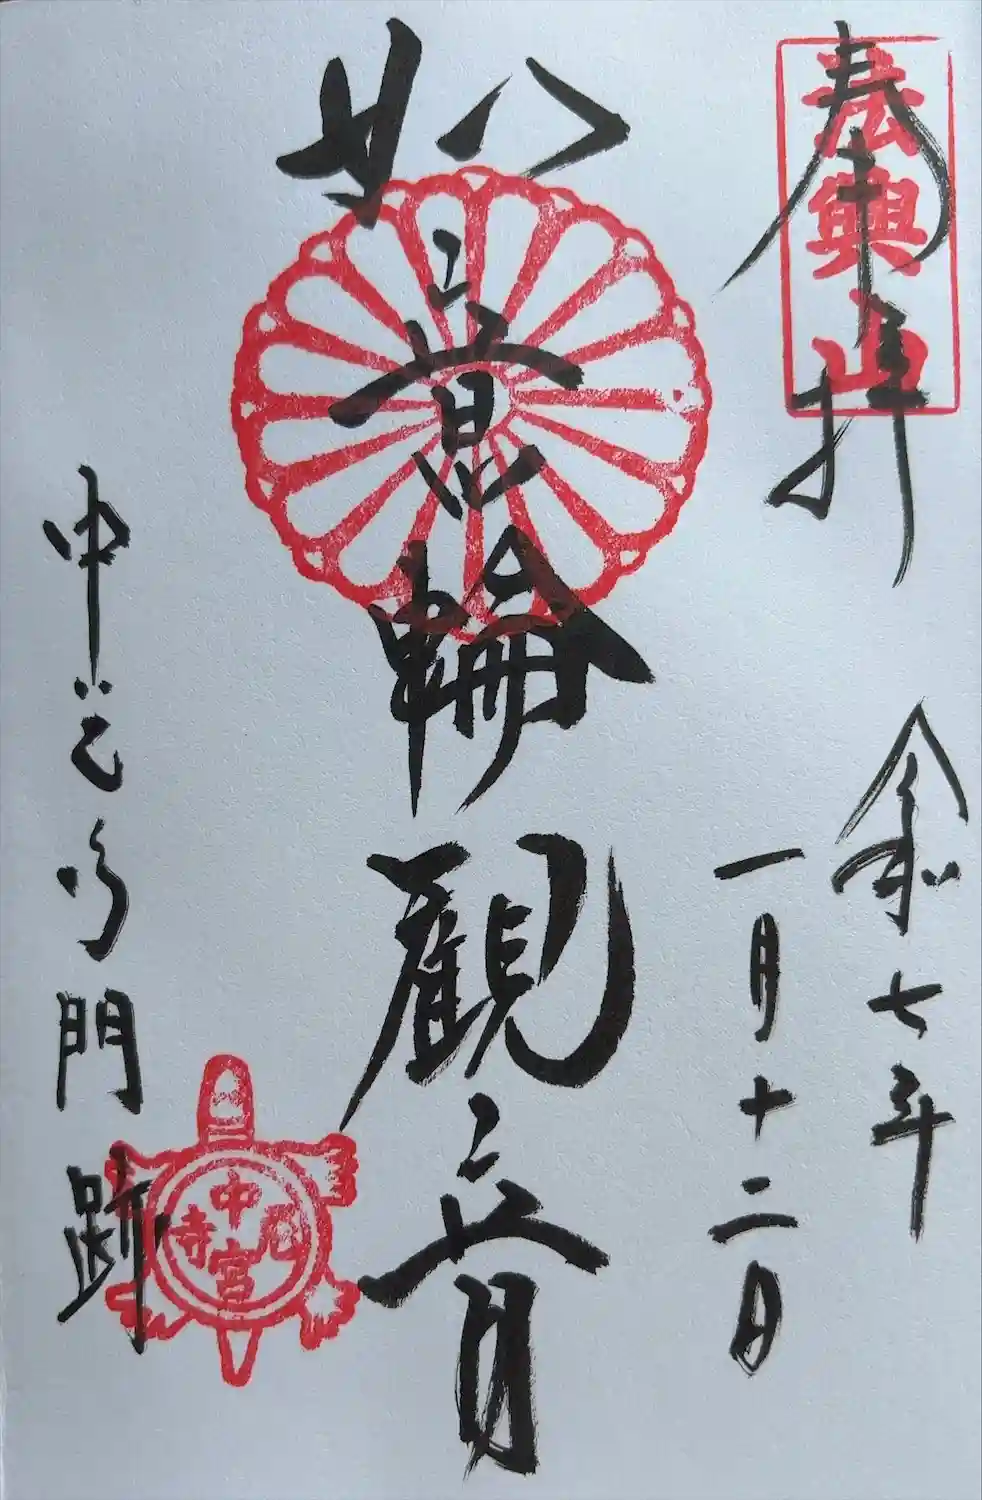 奉拝
法興山
令七年
一月十二日
如意輪観音
中宮寺門跡
中宮尼寺